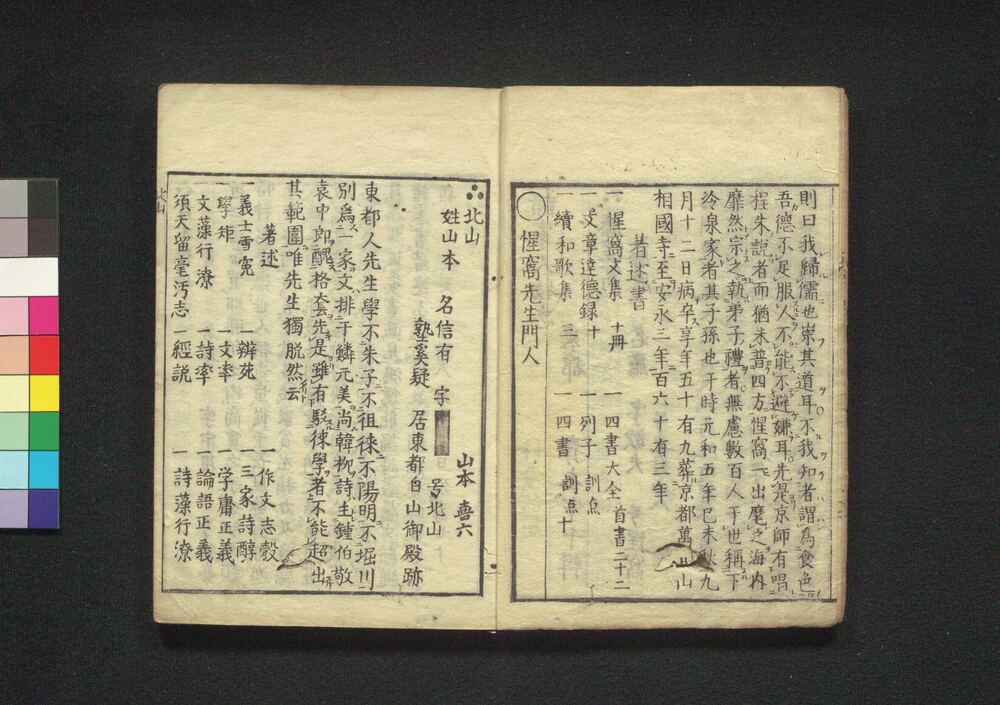 則曰我歸儒也崇其道耳不我知者謂爲食色
吾德不足服人不能不避嫌耳先是京師有唱
程朱說者而猶未普四方惺窩一出麾之海内
靡然宗之執弟子禮者無慮數百人于世稱下
冷泉家者其子孫也于時元和五年己未秋九
月十二日病卒享年五十有九葬京都萬年山
相國寺至安永三年百六十有三年
著述書
一惺窩文集 十冊 一四書大全 首書二十二
一文章達德録 十 一列子 訓点
一續和歌集 一四書 訓点十
惺窩先生門人
北山 山本 喜六
姓山本 名信有 字 号北山
塾奚疑 居東都白山御殿跡
東都人先生學不朱子不徂徠不陽明不堀川
別爲一家文排于鱗元美尚韓柳詩主鍾伯敬
袁中郎醜格套先是雖有駁徠學者不能超出
其範圍唯先生獨脱然云
著述 一作文志彀
一義士雪寃 一辨茺 一三家詩醇
一學矩 一文率 一学庸正義
一文藻行潦 一詩率 一論語正義
須天留毫汚志 一經説 一詩藻行潦
北山